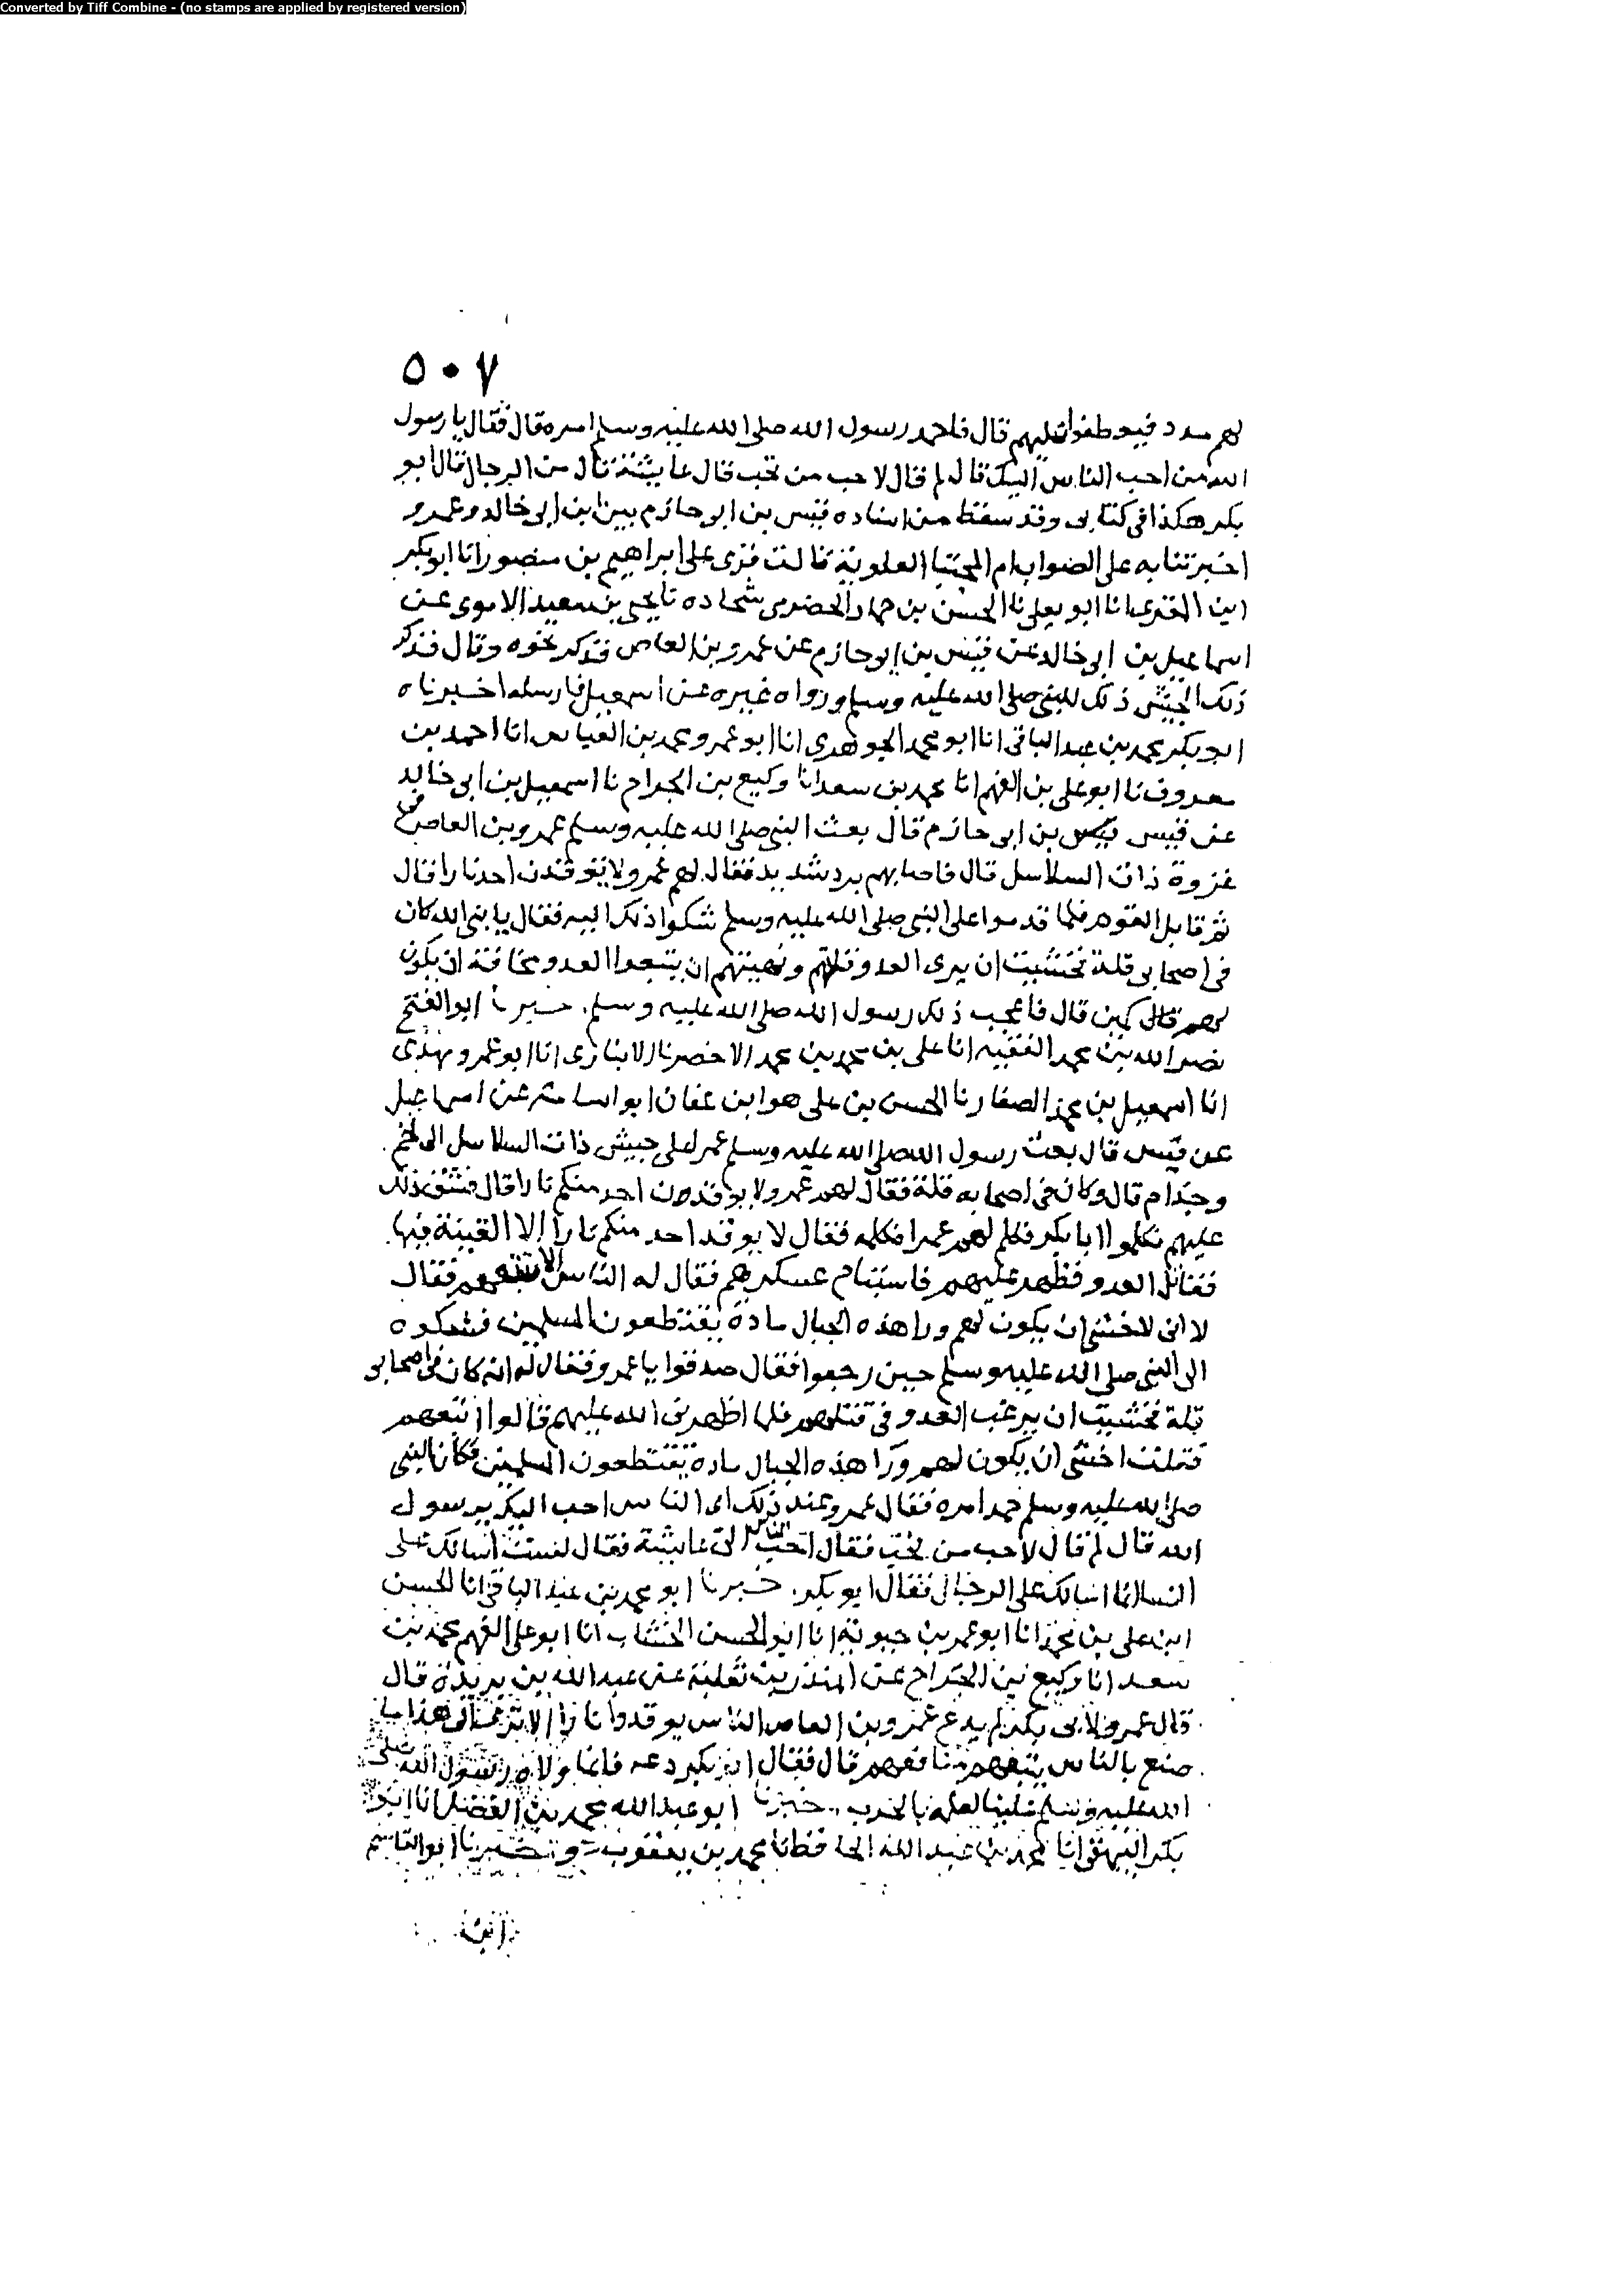 Converted by Tiff Combine - (no stamps are applied by registered version)
٥٠٧
لهم مدد فيعطفوا عليهم قال فاحمد رسول الله صلى الله عليه وسلم امره قال فقال يا رسول
الله من احب الناس اليك قال لم قال لاحب من تحب قال عايشة قال من الرجال قال ابو
بكر هكذا فى كتابى وقد سقط من اسناده قيس بن ابو حازم بين ابن ابى خالد وعمرو
اخبرتنا به على الصواب ام المجتبا العلوية قالت قرى على ابراهيم بن منصور انا ابو بكر
ابن المقرى انا ابو يعلى نا الحسن بن حماد الحضرمى سجاده نا يحيى بن سعيد الاموى عن
اسماعيل بن ابى خالد عن قيس بن ابو حازم عن عمرو بن العاص فذكر نحوه وقال فذكر
ذلك الجيش ذلك للنبى صلى الله عليه وسلم ورواه غيره عن اسمعيل فارسله اخبرناه
ابو بكر محمد بن عبد الباقى انا ابو محمد الجوهرى انا ابو عمرو محمد بن العباس انا احمد بن
معروف نا ابو على بن الفهم انا محمد بن سعد انا وكيع بن الجراح نا اسمعيل بن ابى خالد
عن قيس بن ابى حازم قال بعث النبى صلى الله عليه وسلم عمرو بن العاص فى
غزوة ذات السلاسل قال فاصابهم برد شديد فقال لهم عمرو لا يوقدن احد نارا قال
ثم قابل القوم فلما قدموا على النبى صلى الله عليه وسلم شكوا ذلك اليه فقال يا نبى الله كان
فى اصحابى قلة فخشيت ان يرى العدو قلتهم ونهيتهم ان يتبعوا العدو مخافة ان يكون
لهم كمين قال فاعجب ذلك رسول الله صلى الله عليه وسلم. خبرنا ابو الفتح
نصر الله بن محمد الفقيه انا على بن محمد بن محمد الاخضر نا الانبارى انا ابو عمرو مهدى
انا اسمعيل بن محمد الصفار نا الحسن بن على هو ابن عفان ابو اسامة عن اسماعيل
عن قيس قال بعث رسول الله صلى الله عليه وسلم عمر على جيش ذات السلاسل الى لخم.
وجذام قال وكان فى اصحابه قلة فقال لهم عمرو لا يوقدون احد منكم نارا قال فشق ذلك
عليهم فكلموا ابا بكر فكلم لهم عمرا فكلمه فقال لا يوقد احد منكم نارا الا القيته فيها.
فقاتل العدو فظهر عليهم فاستباح عسكرهم فقال له الناس الا نتبعهم فقال
لا انى لاخشى ان يكون لهم ورا هذه الجبال مادة يقتطعون المسلمين فشكوه
الى النبى صلى الله عليه وسلم حين رجعوا فقال صدقوا يا عمرو فقال له انه كان فى اصحابى
قلة فخشيت ان يرغب العدو فى قتلهم فلما اظهرنى الله عليهم قالوا انتبعهم
فقلت اخشى ان يكون لهم ورا هذه الجبال مادة يقتطعون المسلمين فكان النبى
صلى الله عليه وسلم حمد امره فقال عمرو عند ذلك اى الناس احب اليك يرسول
الله قال لم قال لاحب من تحب فقال احب الناس الى عايشة فقال لست اسالك على
النسا انما اسالك على الرجال فقال ابو بكر. خبرنا ابو محمد بن عبد الباقى انا الحسن
ابن على بن محمد انا ابو عمر بن حيوية انا ابو الحسن الخشاب انا ابو على الفهم محمد بن
سعد انا وكيع بن الجراح عن المنذر بن ثعلبة عن عبد الله بن بريدة قال
قال عمر لابى بكر لم يدع عمرو بن العاص الناس يوقدوا نارا الا ترى الى هذا ما
صنع بالناس يتبعهم منافعهم قال فقال ابو بكر دعه فانما ولاه رسول الله صلى
الله عليه وسلم علينا لعلمه بالحرب.. خبرنا ابو عبد الله محمد بن الفضل انا ابو
بكر البيهقى انا محمد بن عبد الله الحافظ نا محمد بن يعقوب وخبرنا ابو القاسم